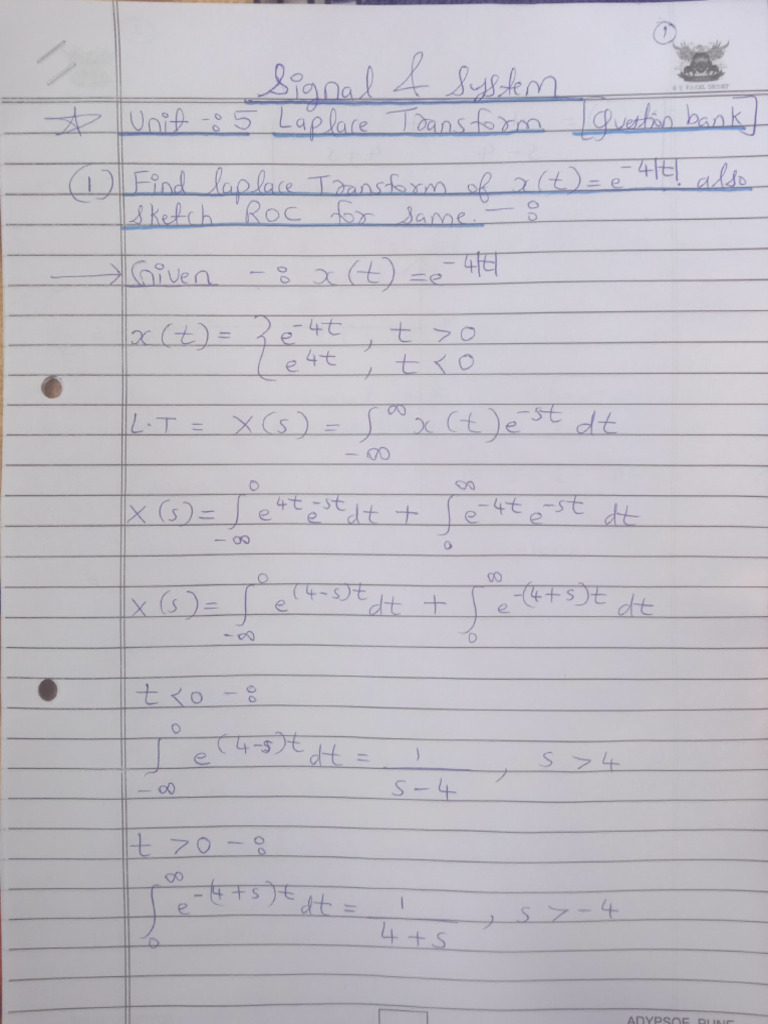 1
Signal & System
Unit -: 5 Laplace Transform [Question bank]
(1) Find laplace Transform of x(t) = e^-4|t| also
sketch ROC for same. -:
→ Given -: x(t) = e^-4|t|
x(t) = { e^-4t , t > 0
e^4t , t < 0
L.T = X(s) = ∫_-∞^∞ x(t) e^-st dt
X(s) = ∫_-∞^0 e^4t e^-st dt + ∫_0^∞ e^-4t e^-st dt
X(s) = ∫_-∞^0 e^(4-s)t dt + ∫_0^∞ e^-(4+s)t dt
t < 0 -:
∫_-∞^0 e^(4-s)t dt = 1/(s-4) , s > 4
t > 0 -:
∫_0^∞ e^-(4+s)t dt = 1/(4+s) , s > -4
ADYPSOE, PUNE